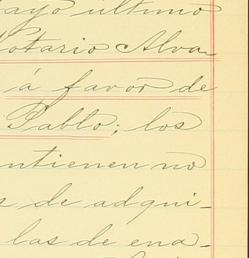 ayo último
Notario Alva-
á favor de
Pablo; los
ntienen no
s de adqui-
las de ena-